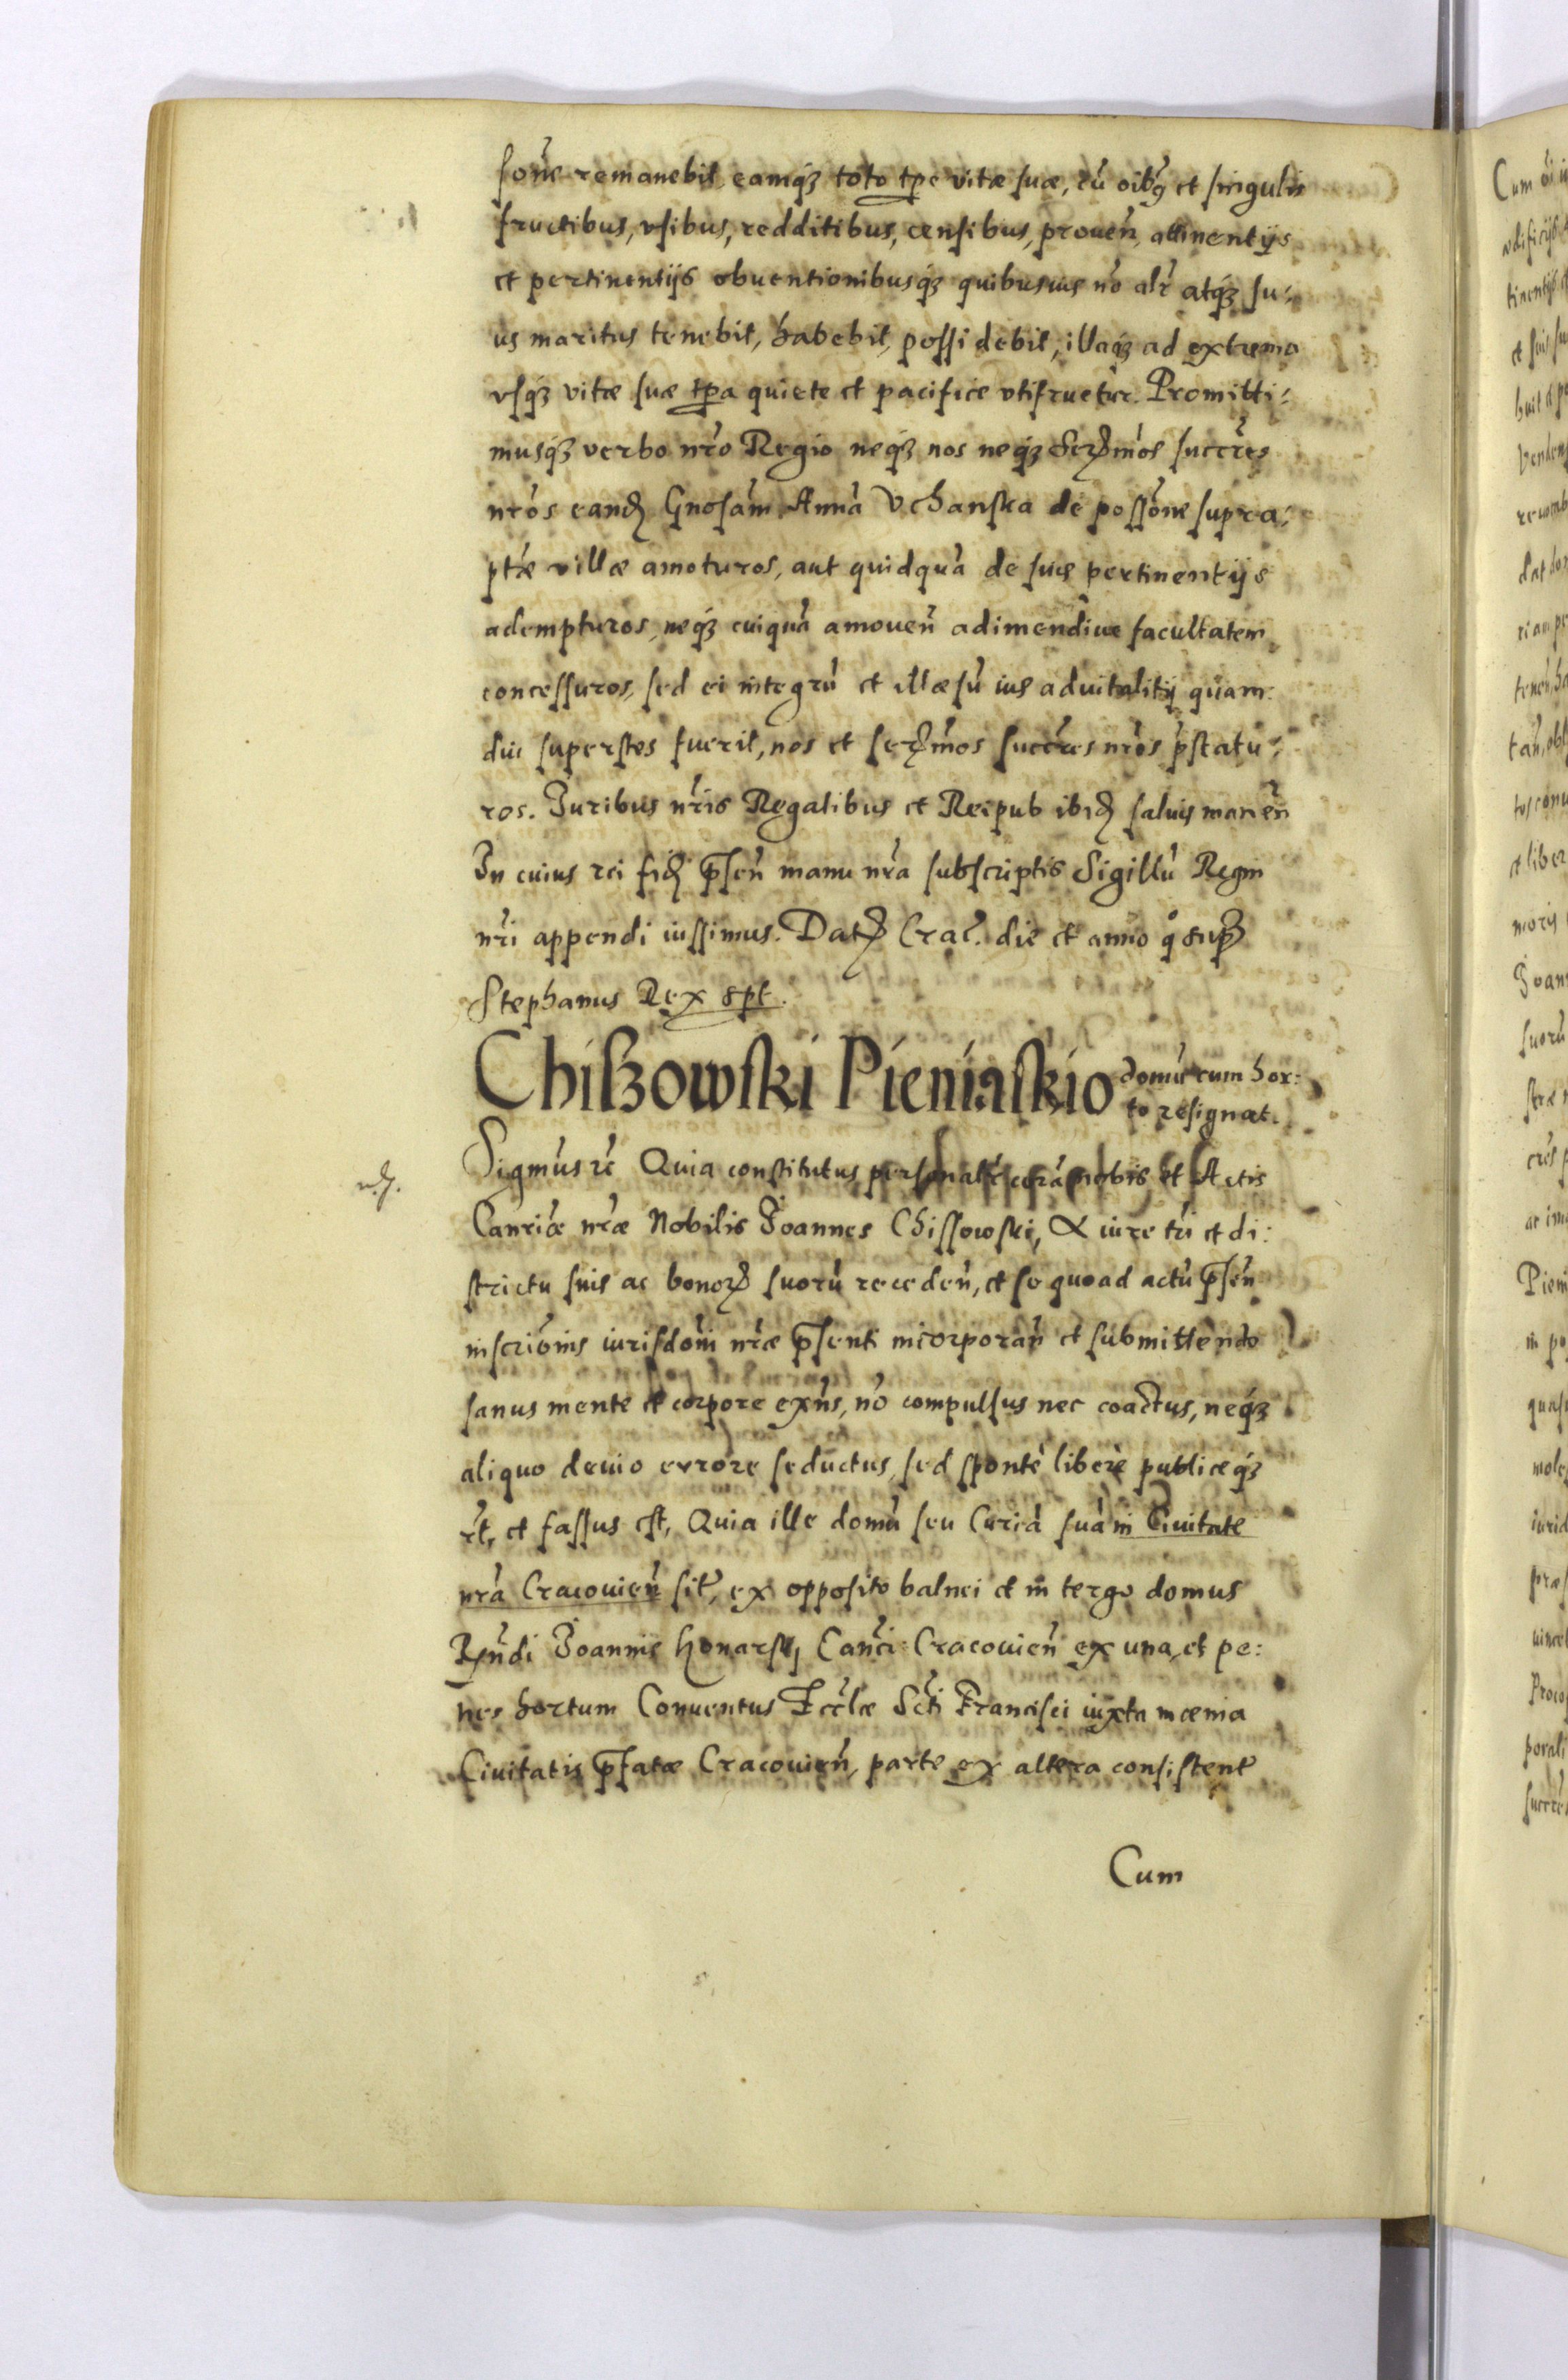 sone remanebit, eamq3 toto tpe vitæ suæ, cu oib9 et singulis
fructibus, vsibus, redditibus, censibus, prouen, attinentijs
et pertinentijs obuentionibusq3 quibusuis no alr atq3 su:
us maritus tenebit, habebit, possidebit, illaq3 ad extrema
vsq3 vitæ suæ tpa quiete et pacifice vtifruetur. Promitti:
musq3 verbo nro Regio neq3 nos neq3 Sermos succres
nros eand Gnosam Anna Vchanska de possone supra:
ptæ villæ amoturos, aut quidqua de suis pertinentijs
adempturos, neq3 cuiqua amouen adimendiue facultatem
concessuros, sed ei integru et illæsu ius aduitalitij quam:
diu superstes fuerit, nos et sermos succres nros pstatu:
ros. Iuribus nris Regalibus et Reipub ibid saluis manen
In cuius rei fid psen manu nra subscriptis Sigillu Regni
nri appendi iussimus. Dat Crac. die et anno q° sup
Stephanus Rex spt.
Chiszowski Pieniaskio domu cum hor:
to resignat.
Sigmus rc Quia constitutus personalr cora nobis et Actis
Canriæ nræ Nobilis Joannes Chissowski, A iure tri et di:
strictu suis ac bonor suoru receden, et se quoad actu psen
inscrionis iurisdoni nræ psenti incorporan et submittendo
sanus mente et corpore exns, no compulsus nec coactus, neq3
aliquo deuio errore seductus, sed sponte libere publiceq3
rt, et fassus est, Quia ille domu seu Curia sua in Ciuitate
nra Cracouien sit, ex opposito balnei et in tergo domus
Rndi Joannis Konarskj Canci: Cracouien ex una, et pe:
nes hortum Conuentus Ecclæ Scti Francisci iuxta mœnia
Ciuitatis pfatæ Cracouien, parte ex altera consistent
Cum